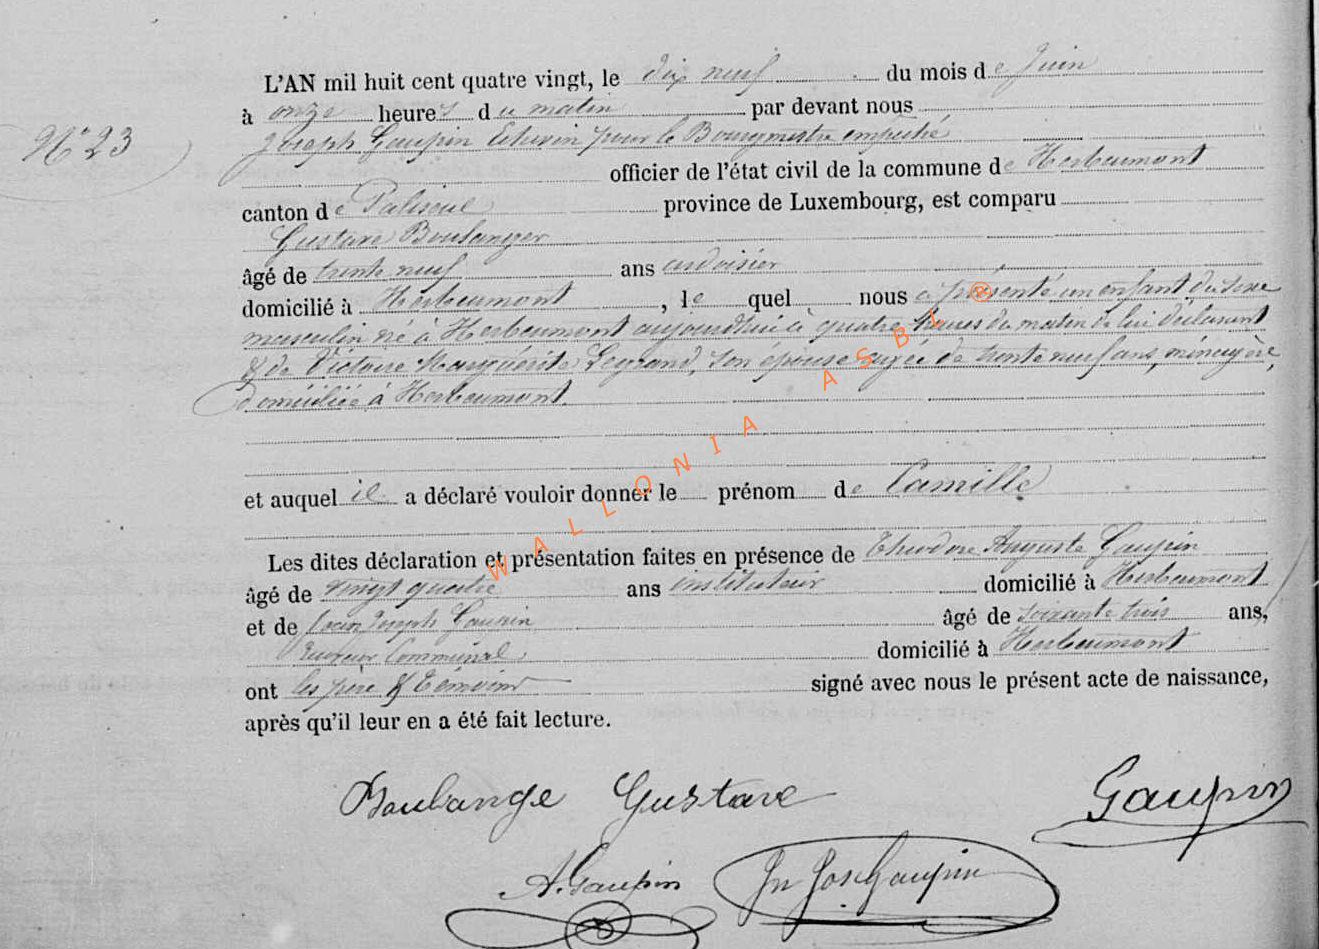 L'AN mil huit cent quatre vingt, le dix neuf du mois de Juin
N° 23
à onze heures du matin par devant nous
Joseph Gaupin Echevin pour le Bourgmestre empêché
officier de l'état civil de la commune de Herbeumont
canton de Paliseul province de Luxembourg, est comparu
Gustave Boulanger
âgé de trente neuf ans ardoisier
domicilié à Herbeumont, lequel nous a présenté un enfant du sexe
masculin né à Herbeumont aujourd'hui à quatre heures du matin de lui déclarant
& de Victoire Marguérite Legrand, son épouse agée de trente neuf ans, ménagère,
domiciliée à Herbeumont.
et auquel il a déclaré vouloir donner le prénom de Camille
Les dites déclaration et présentation faites en présence de Théodore Auguste Gaupin
âgé de vingt quatre ans instituteur domicilié à Herbeumont
et de Jean Joseph Gaupin âgé de soixante trois ans,
Receveur Communal domicilié à Herbeumont
ont les père & témoins signé avec nous le présent acte de naissance,
après qu'il leur en a été fait lecture.
Boulange Gustave Gaupin
A. Gaupin Jn Jos Gaupin
WALLONIA ASBL ®